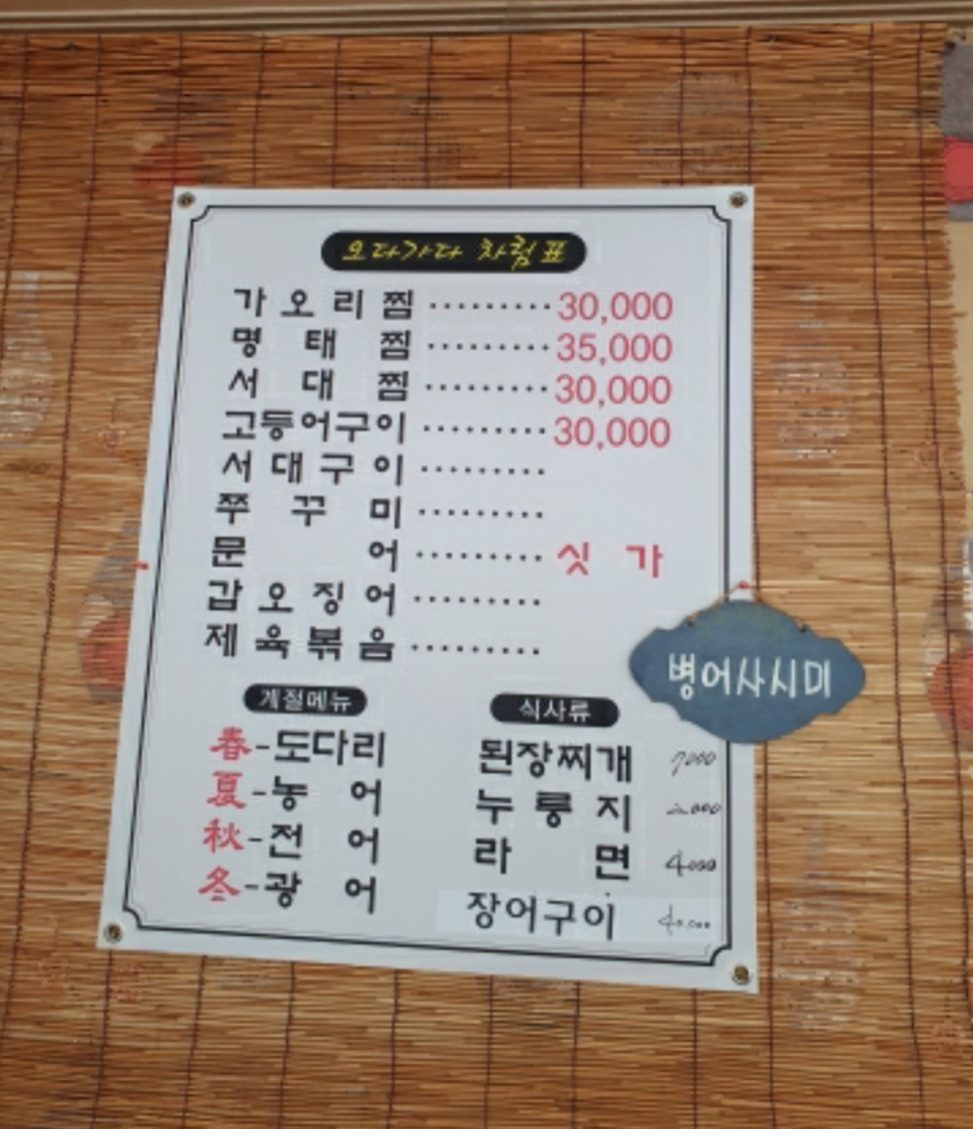 오다가다 차림표
가오리찜 ......... 30,000
명태찜 ......... 35,000
서대찜 ......... 30,000
고등어구이 ......... 30,000
서대구이 .........
쭈꾸미 .........
문어 ......... 싯가
갑오징어 .........
제육볶음 .........
병어사시미
계절메뉴
春-도다리
夏-농어
秋-전어
冬-광어
식사류
된장찌개 7000
누룽지 2000
라면 4000
장어구이 40,000